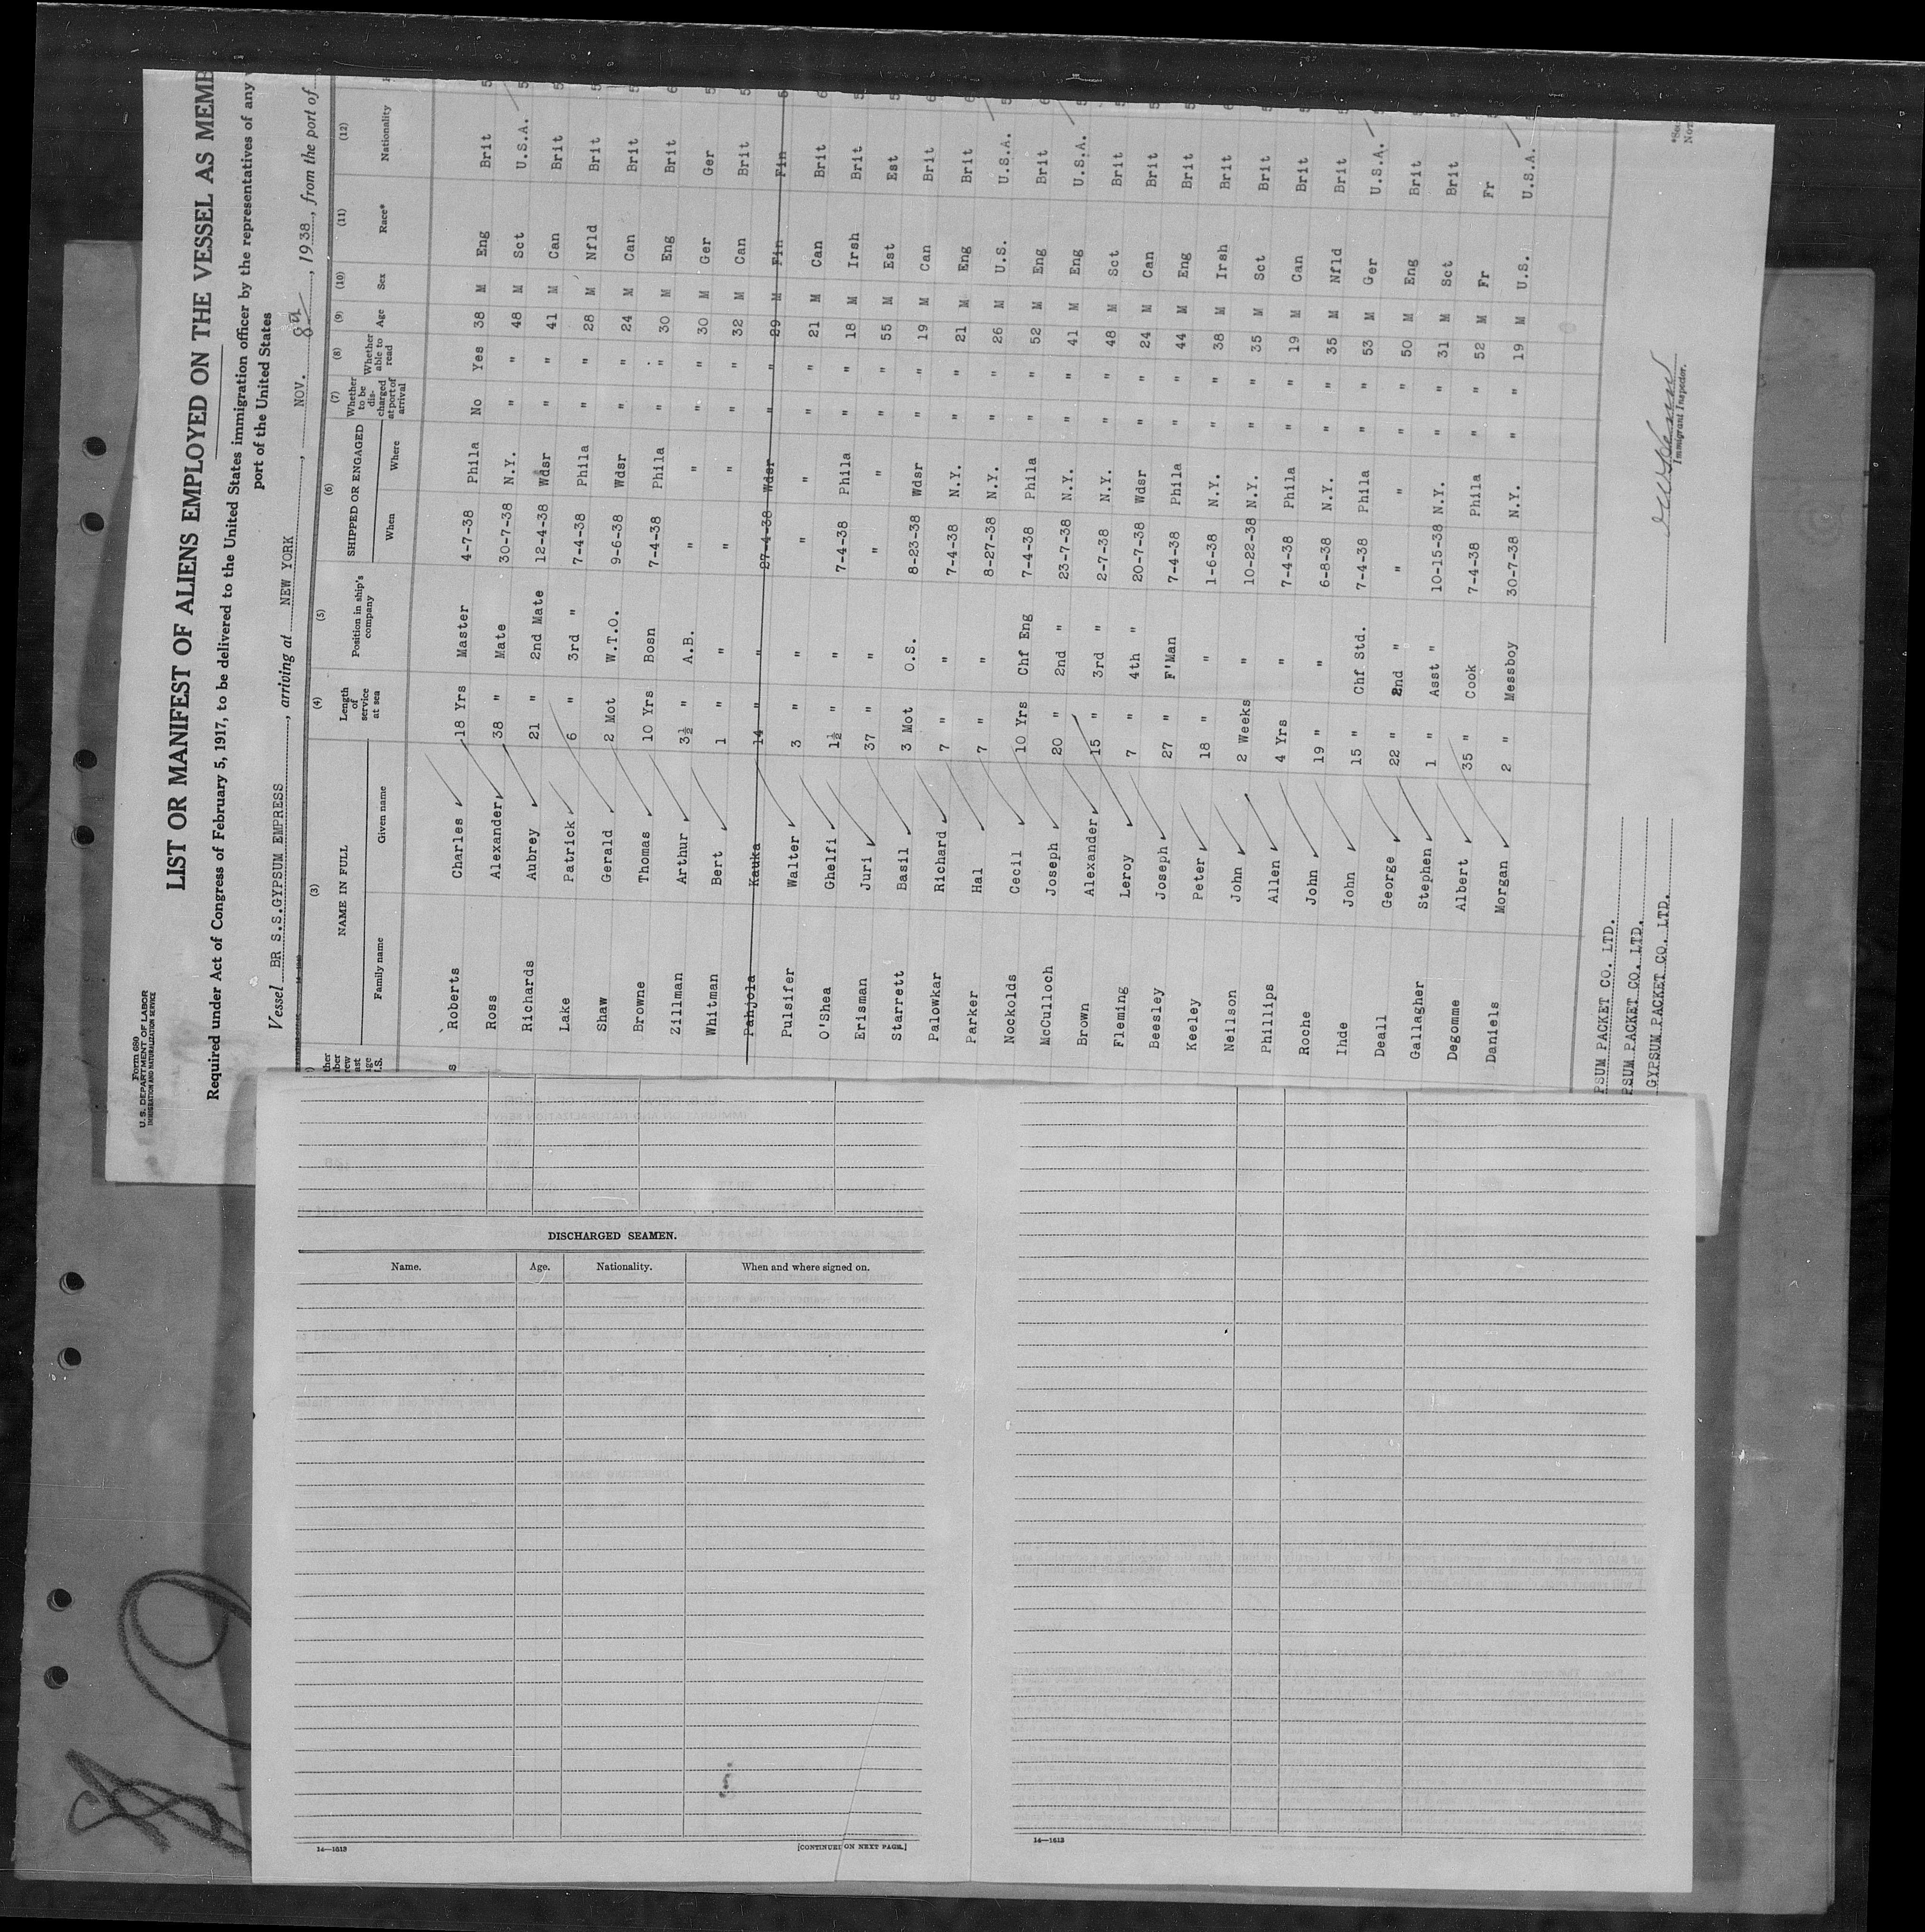 Form 680
U. S. DEPARTMENT OF LABOR
IMMIGRATION AND NATURALIZATION SERVICE
LIST OR MANIFEST OF ALIENS EMPLOYED ON THE VESSEL AS MEMB
Required under Act of Congress of February 5, 1917, to be delivered to the United States immigration officer by the representatives of any
port of the United States
Vessel BR S.S.GYPSUM EMPRESS, arriving at NEW YORK, NOV. 8th, 1938, from the port of
(3) (4) (5) (6) (7) (8) (9) (10) (11) (12)
NAME IN FULL Length of service at sea Position in ship's company SHIPPED OR ENGAGED Whether to be discharged at port of arrival Whether able to read Age Sex Race* Nationality
Family name Given name When Where
Roberts Charles 18 Yrs Master 4-7-38 Phila No Yes 38 M Eng Brit 5
Ross Alexander 38 " Mate 30-7-38 N.Y. " " 48 M Sct U.S.A. 5
Richards Aubrey 21 " 2nd Mate 12-4-38 Wdsr " " 41 M Can Brit 5
Lake Patrick 6 " 3rd " 7-4-38 Phila " " 28 M Nfld Brit 5
Shaw Gerald 2 Mot W.T.O. 9-6-38 Wdsr " " 24 M Can Brit 5
Browne Thomas 10 Yrs Bosn 7-4-38 Phila " " 30 M Eng Brit 6
Zillman Arthur 3½ " A.B. " " " " 30 M Ger Ger 5
Whitman Bert 1 " " " " " " 32 M Can Brit 5
Pahjola Kauka 14 " " 27-4-38 Wdsr " " 29 M Fin Fin 5
Pulsifer Walter 3 " " " " " " 21 M Can Brit 6
O'Shea Ghelfi 1½ " " 7-4-38 Phila " " 18 M Irsh Brit 5
Erisman Juri 37 " " " " " " 55 M Est Est 5
Starrett Basil 3 Mot O.S. 8-23-38 Wdsr " " 19 M Can Brit 6
Palowkar Richard 7 " " 7-4-38 N.Y. " " 21 M Eng Brit 6
Parker Hal 7 " " 8-27-38 N.Y. " " 26 M U.S. U.S.A. 5
Nockolds Cecil 10 Yrs Chf Eng 7-4-38 Phila " " 52 M Eng Brit 6
McCulloch Joseph 20 " 2nd " 23-7-38 N.Y. " " 41 M Eng U.S.A. 5
Brown Alexander 15 " 3rd " 2-7-38 N.Y. " " 48 M Sct Brit 5
Fleming Leroy 7 " 4th " 20-7-38 Wdsr " " 24 M Can Brit 5
Beesley Joseph 27 " F'Man 7-4-38 Phila " " 44 M Eng Brit 5
Keeley Peter 18 " " 1-6-38 N.Y. " " 38 M Irsh Brit 6
Neilson John 2 Weeks " 10-22-38 N.Y. " " 35 M Sct Brit 5
Phillips Allen 4 Yrs " 7-4-38 Phila " " 19 M Can Brit 5
Roche John 19 " " 6-8-38 N.Y. " " 35 M Nfld Brit 5
Ihde John 15 " Chf Std. 7-4-38 Phila " " 53 M Ger U.S.A. 5
Deall George 22 " 2nd " " " " " 50 M Eng Brit 5
Gallagher Stephen 1 " Asst " 10-15-38 N.Y. " " 31 M Sct Brit 5
Degomme Albert 35 " Cook 7-4-38 Phila " " 52 M Fr Fr 5
Daniels Morgan 2 " Messboy 30-7-38 N.Y. " " 19 M U.S. U.S.A. 5
PSUM PACKET CO. LTD.
PSUM PACKET CO. LTD.
GYPSUM PACKET CO. LTD.
Immigrant Inspector.
DISCHARGED SEAMEN.
Name. Age. Nationality. When and where signed on.
14—1613
[CONTINUED ON NEXT PAGE.]
14—1613